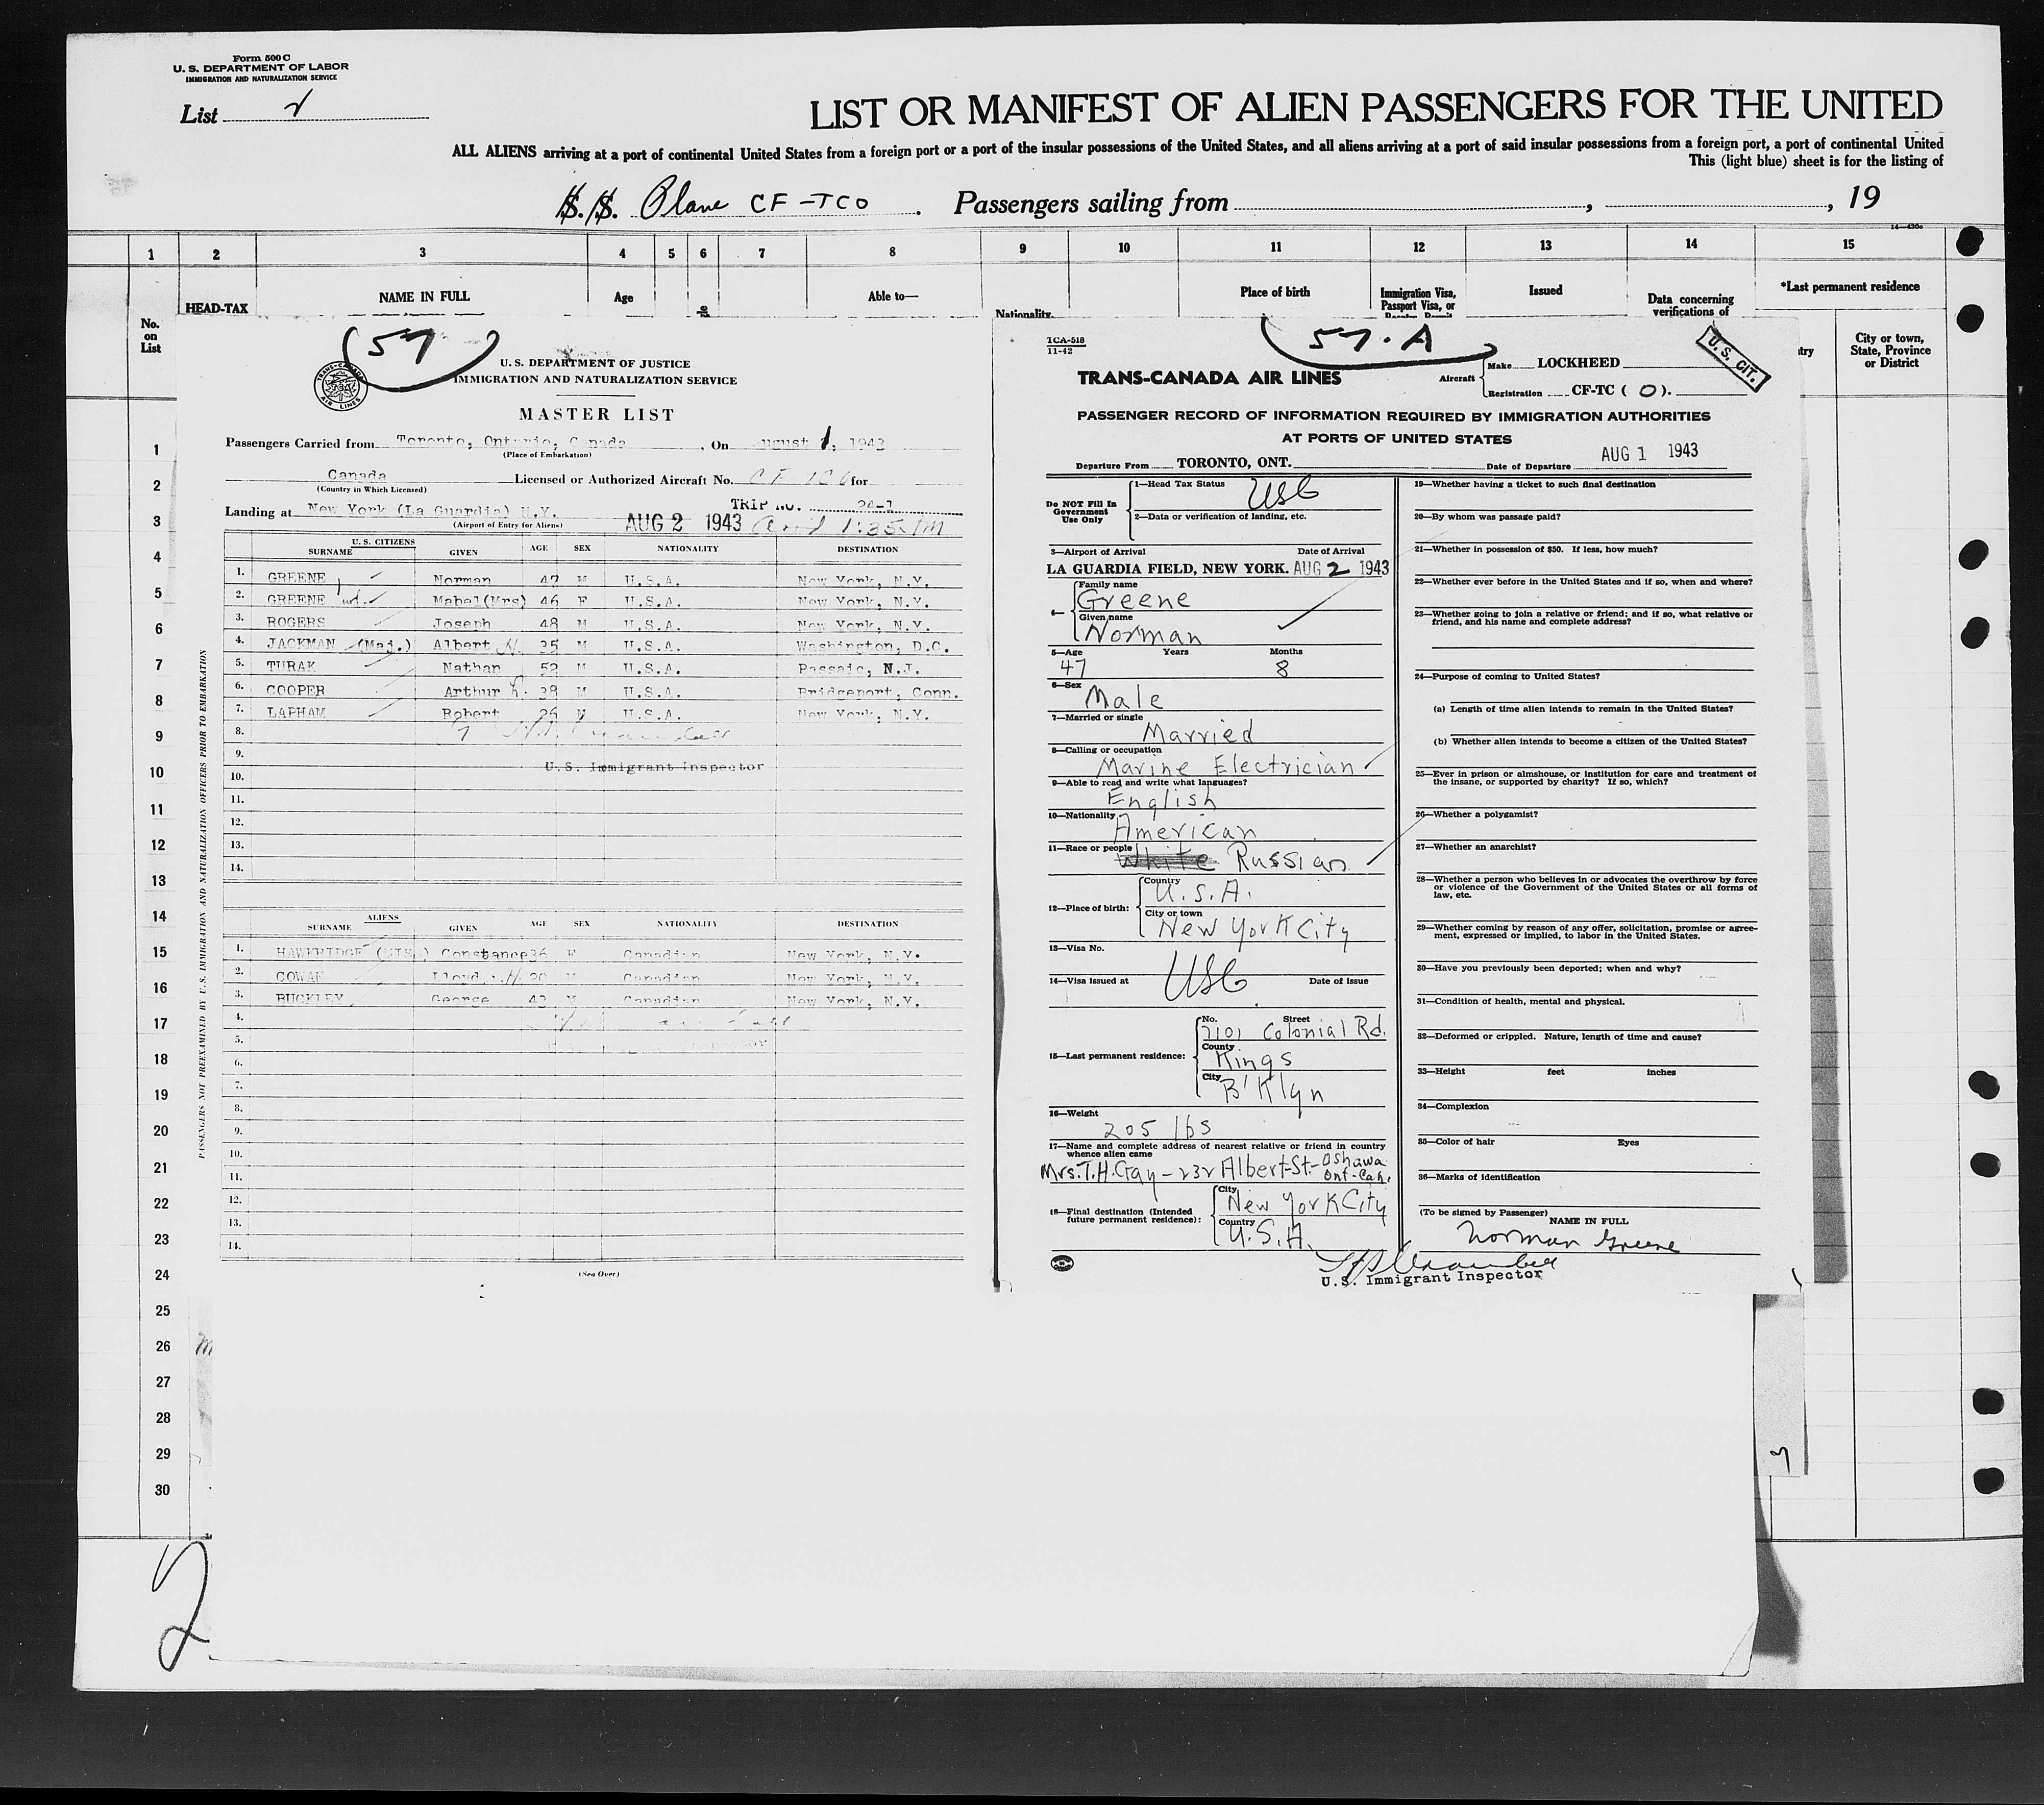 Form 500 C
U. S. DEPARTMENT OF LABOR
IMMIGRATION AND NATURALIZATION SERVICE
List 2
LIST OR MANIFEST OF ALIEN PASSENGERS FOR THE UNITED
ALL ALIENS arriving at a port of continental United States from a foreign port or a port of the insular possessions of the United States, and all aliens arriving at a port of said insular possessions from a foreign port, a port of continental United
This (light blue) sheet is for the listing of
S. S. Plane CF-TCO . Passengers sailing from , , 19
1 2 3 4 5 6 7 8 9 10 11 12 13 14 15
No. on List
HEAD-TAX
NAME IN FULL
Age
Able to—
Nationality.
Place of birth
Immigration Visa, Passport Visa, or
Issued
Data concerning verifications of
*Last permanent residence
City or town, State, Province or District
1
2
3
4
5
6
7
8
9
10
11
12
13
14
15
16
17
18
19
20
21
22
23
24
25
26
27
28
29
30
2
57
U.S. DEPARTMENT OF JUSTICE
IMMIGRATION AND NATURALIZATION SERVICE
TRANS-CANADA AIR LINES
MASTER LIST
Passengers Carried from Toronto, Ontario, Canada , On August 1, 1943
(Place of Embarkation)
Canada Licensed or Authorized Aircraft No. for
(Country in Which Licensed)
TRIP NO. 24-1
Landing at New York (La Guardia) N.Y.
(Airport of Entry for Aliens)
AUG 2 1943 1:35 AM
PASSENGERS NOT PREEXAMINED BY U.S. IMMIGRATION AND NATURALIZATION OFFICERS PRIOR TO EMBARKATION
U. S. CITIZENS
SURNAME GIVEN AGE SEX NATIONALITY DESTINATION
1. GREENE Norman 47 M U.S.A. New York, N.Y.
2. GREENE Mabel(Mrs) 46 F U.S.A. New York, N.Y.
3. ROGERS Joseph 48 M U.S.A. New York, N.Y.
4. JACKMAN (Maj.) Albert H. 35 M U.S.A. Washington, D.C.
5. TURAK Nathan 52 M U.S.A. Passaic, N.J.
6. COOPER Arthur 38 M U.S.A. Bridgeport, Conn.
7. LAPHAM Robert 26 M U.S.A. New York, N.Y.
8. 7
9.
U.S. Immigrant Inspector
10.
11.
12.
13.
14.
ALIENS
SURNAME GIVEN AGE SEX NATIONALITY DESTINATION
1. HAWKRIDGE Constance 36 F Canadian New York, N.Y.
2. COWAN Lloyd H. 30 M Canadian New York, N.Y.
3. BUCKLEY George 43 M Canadian New York, N.Y.
4.
5.
6.
7.
8.
9.
10.
11.
12.
13.
14.
(See Over)
TCA-518
11-42
57-A
U.S. CIT.
TRANS-CANADA AIR LINES
Aircraft
Make LOCKHEED
Registration CF-TC ( O ).
PASSENGER RECORD OF INFORMATION REQUIRED BY IMMIGRATION AUTHORITIES
AT PORTS OF UNITED STATES
Departure From TORONTO, ONT. Date of Departure AUG 1 1943
Do NOT Fill In Government Use Only
1—Head Tax Status USC
2—Data or verification of landing, etc.
3—Airport of Arrival Date of Arrival
LA GUARDIA FIELD, NEW YORK. AUG 2 1943
4—
Family name
Greene
Given name
Norman
5—Age Years Months
47 8
6—Sex
Male
7—Married or single
Married
8—Calling or occupation
Marine Electrician
9—Able to read and write what languages?
English
10—Nationality
American
11—Race or people
White Russian
12—Place of birth:
Country
U.S.A.
City or town
New York City
13—Visa No.
USC
14—Visa issued at Date of issue
15—Last permanent residence:
No. Street
7101 Colonial Rd.
County
Kings
City
B'Klyn
16—Weight
205 lbs
17—Name and complete address of nearest relative or friend in country whence alien came
Mrs. T.H. Gay - 232 Albert-St- Oshawa Ont-Can.
18—Final destination (Intended future permanent residence):
City
New York City
Country
U.S.A.
19—Whether having a ticket to such final destination
20—By whom was passage paid?
21—Whether in possession of $50. If less, how much?
22—Whether ever before in the United States and if so, when and where?
23—Whether going to join a relative or friend; and if so, what relative or friend, and his name and complete address?
24—Purpose of coming to United States?
(a) Length of time alien intends to remain in the United States?
(b) Whether alien intends to become a citizen of the United States?
25—Ever in prison or almshouse, or institution for care and treatment of the insane, or supported by charity? If so, which?
26—Whether a polygamist?
27—Whether an anarchist?
28—Whether a person who believes in or advocates the overthrow by force or violence of the Government of the United States or all forms of law, etc.
29—Whether coming by reason of any offer, solicitation, promise or agreement, expressed or implied, to labor in the United States.
30—Have you previously been deported; when and why?
31—Condition of health, mental and physical.
32—Deformed or crippled. Nature, length of time and cause?
33—Height feet inches
34—Complexion
35—Color of hair Eyes
36—Marks of identification
(To be signed by Passenger)
NAME IN FULL
Norman Greene
U.S. Immigrant Inspector